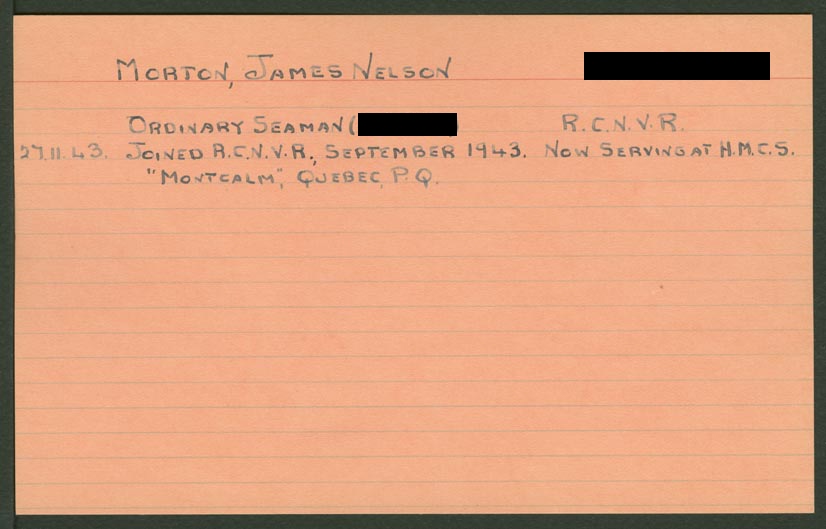 MORTON, JAMES NELSON
ORDINARY SEAMAN ( R.C.N.V.R.
27.11.43. JOINED R.C.N.V.R., SEPTEMBER 1943. NOW SERVING AT H.M.C.S.
"MONTCALM", QUEBEC, P.Q.